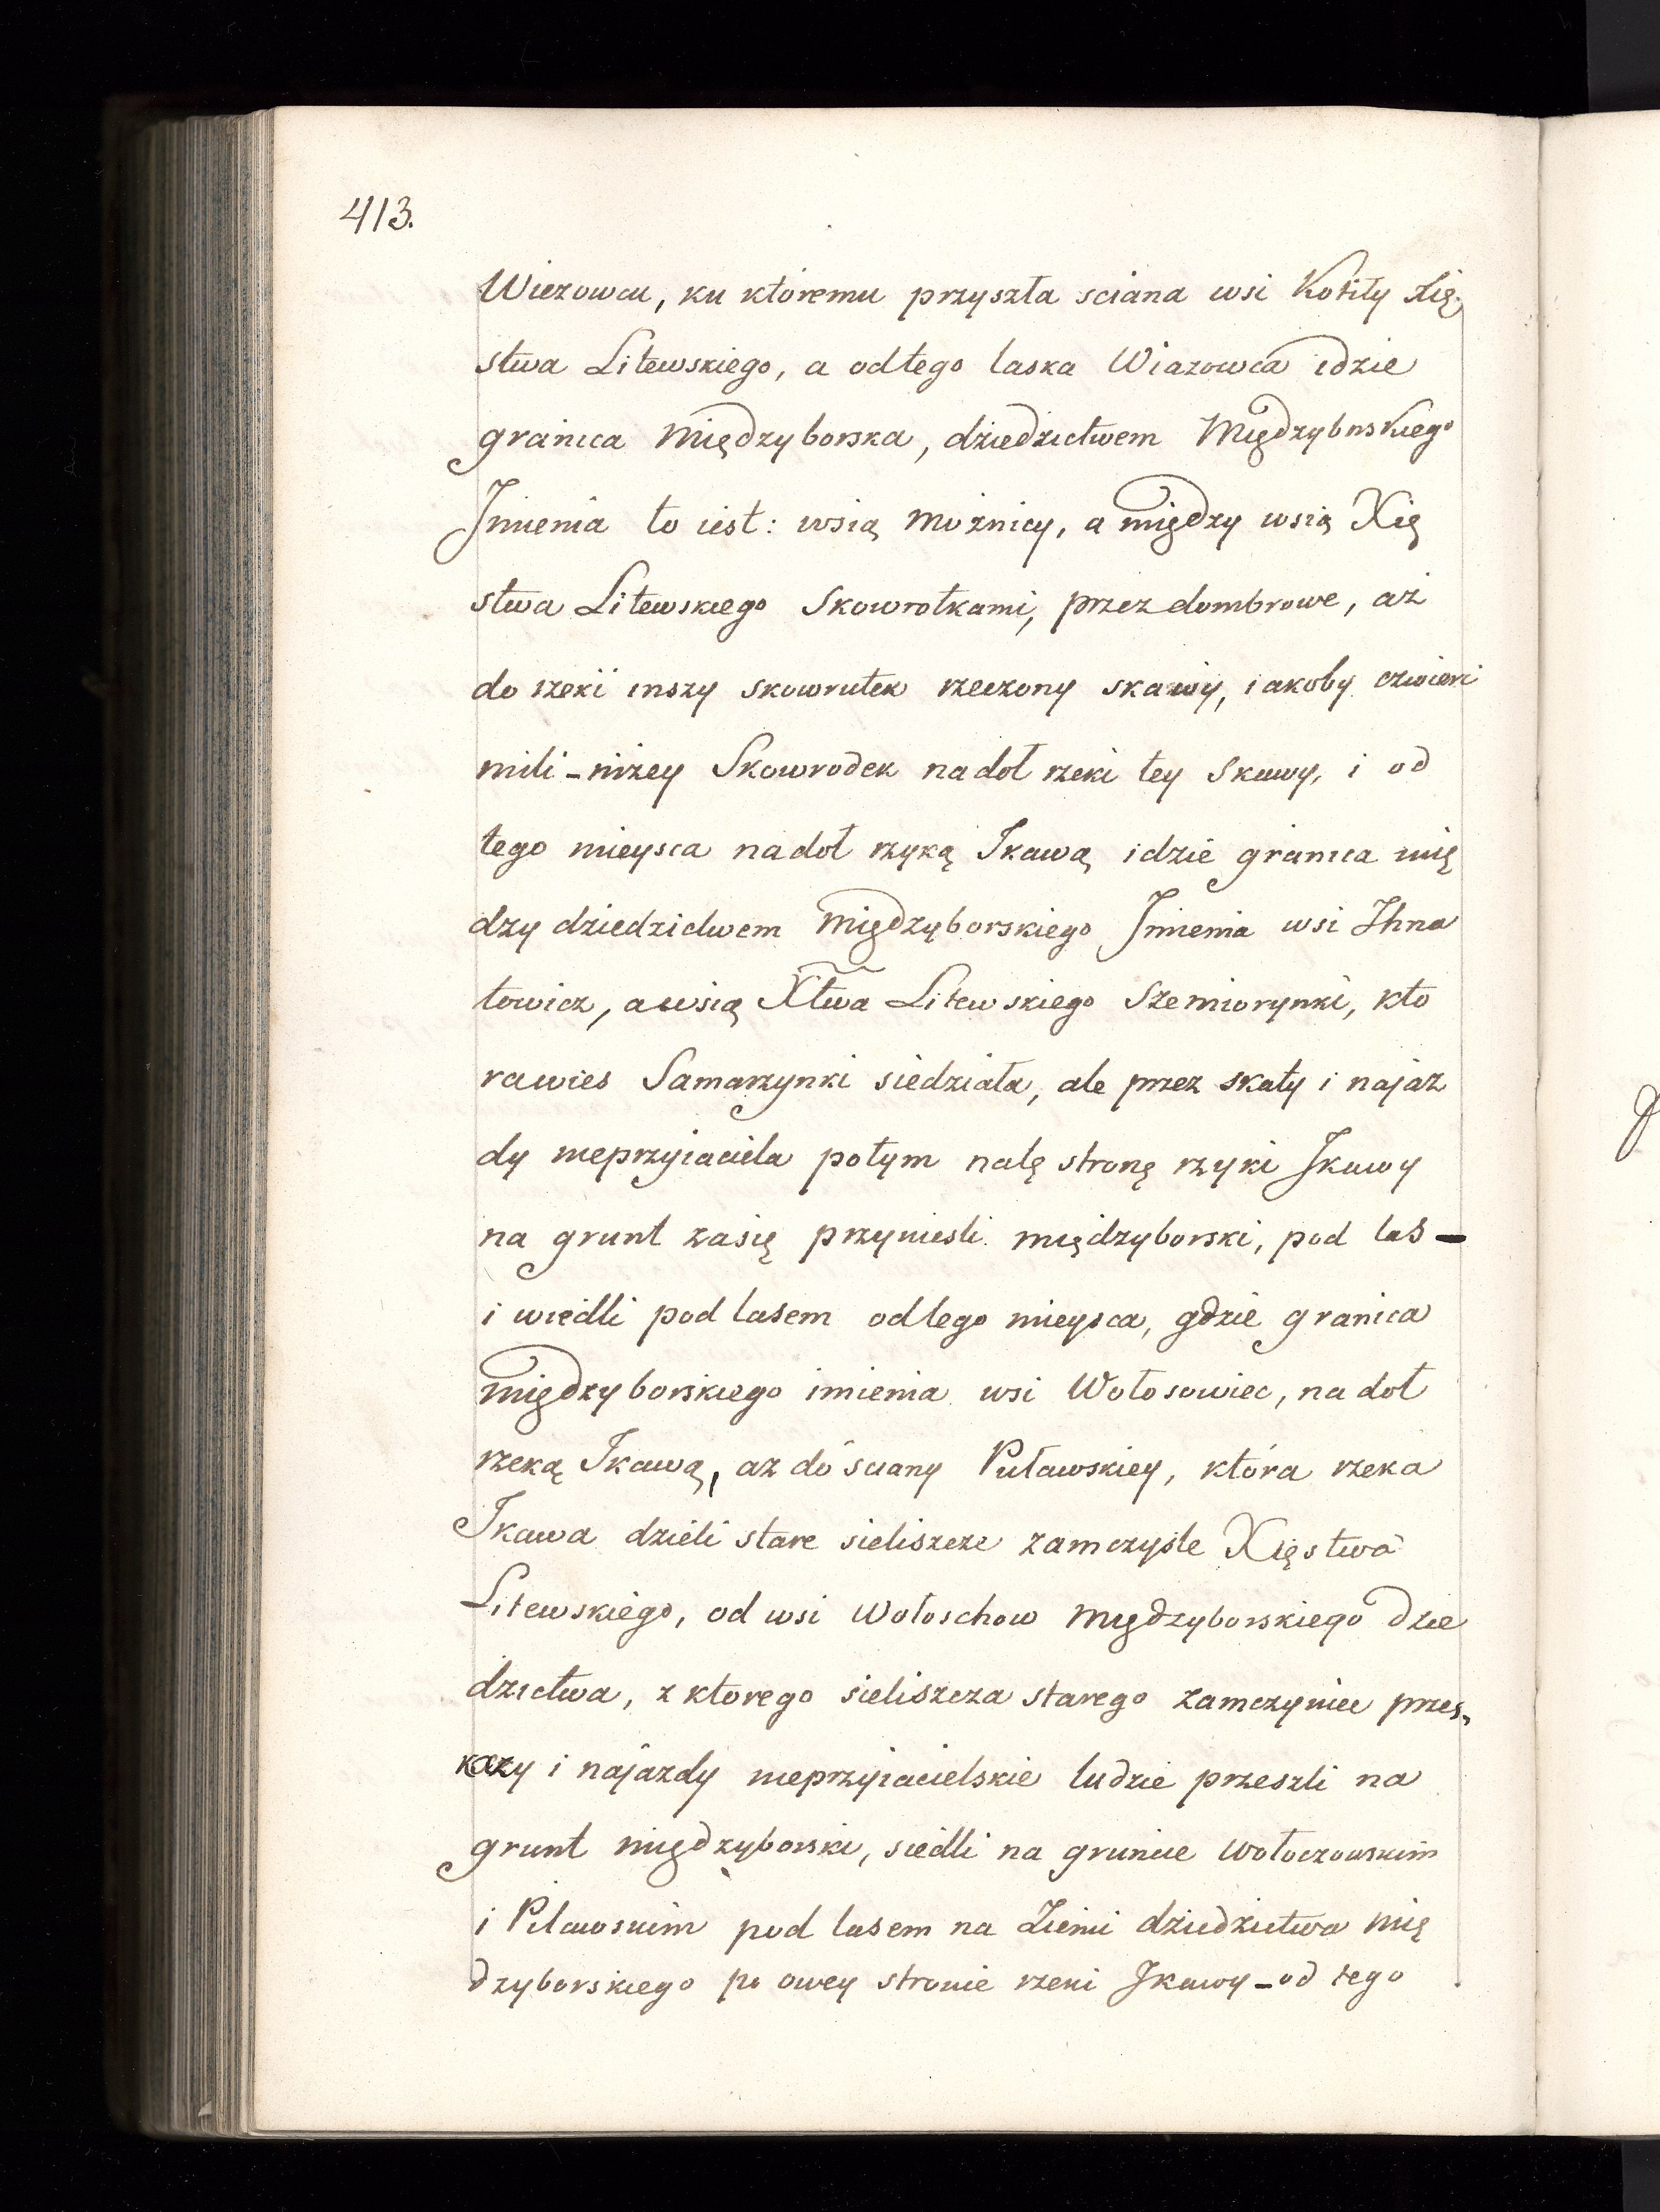 413.
Wiezowcu, ku któremu przyszła sciana wsi Kotity Xię
stwa Litewskiego, a odtego laska Wiazowca idzie
granica Międzyborska, dziedzictwem Międzybrskiego
Jmienia to iest: wsią Moznicy, a między wsią Xię
stwa Litewskiego Skowrotkami, przez dombrowe, aż
do rzeki inszy skowrutek rzeczony skawy, iakoby czwierć
mili - niżey Skowrodek nadoł rzeki tey Skawy, i od
tego mieysca nadoł rzyką Jkawą idzie granica mię
dzy dziedzictwem Międzyborskiego Jmienia wsi Ihna
towicz, awsią Xstwa Litewskiego Szemiorynki, kto
rawies Samarzynki siedziała, ale przez skaty i najaz
dy nieprzyiaciela potym natę stronę rzyki Jkawy
na grunt zasię przyniesli międzyborski, pod las -
i wiedli pod lasem odtego mieysca, gdzie granica
międzyborskiego imienia wsi Wołosowiec, na doł
rzeką Jkawą, az do sciany Puławskiey, która rzeka
Jkawa dzieli stare sieliszcze zamczysle Xięstwa
Litewskiego, od wsi Wołoschow Międzyborskiego dzie
dzictwa, z ktorego sieliszcza starego zamczyniec przes,
kazy i najazdy nieprzyiacielskie ludzie przeszli na
grunt międzyborski, siedli na gruncie Wołoczowskim
i Pilawskim pod lasem na Ziemi dziedzictwa mię
dzyborskiego po owey stronie rzeki Jkawy - od tego